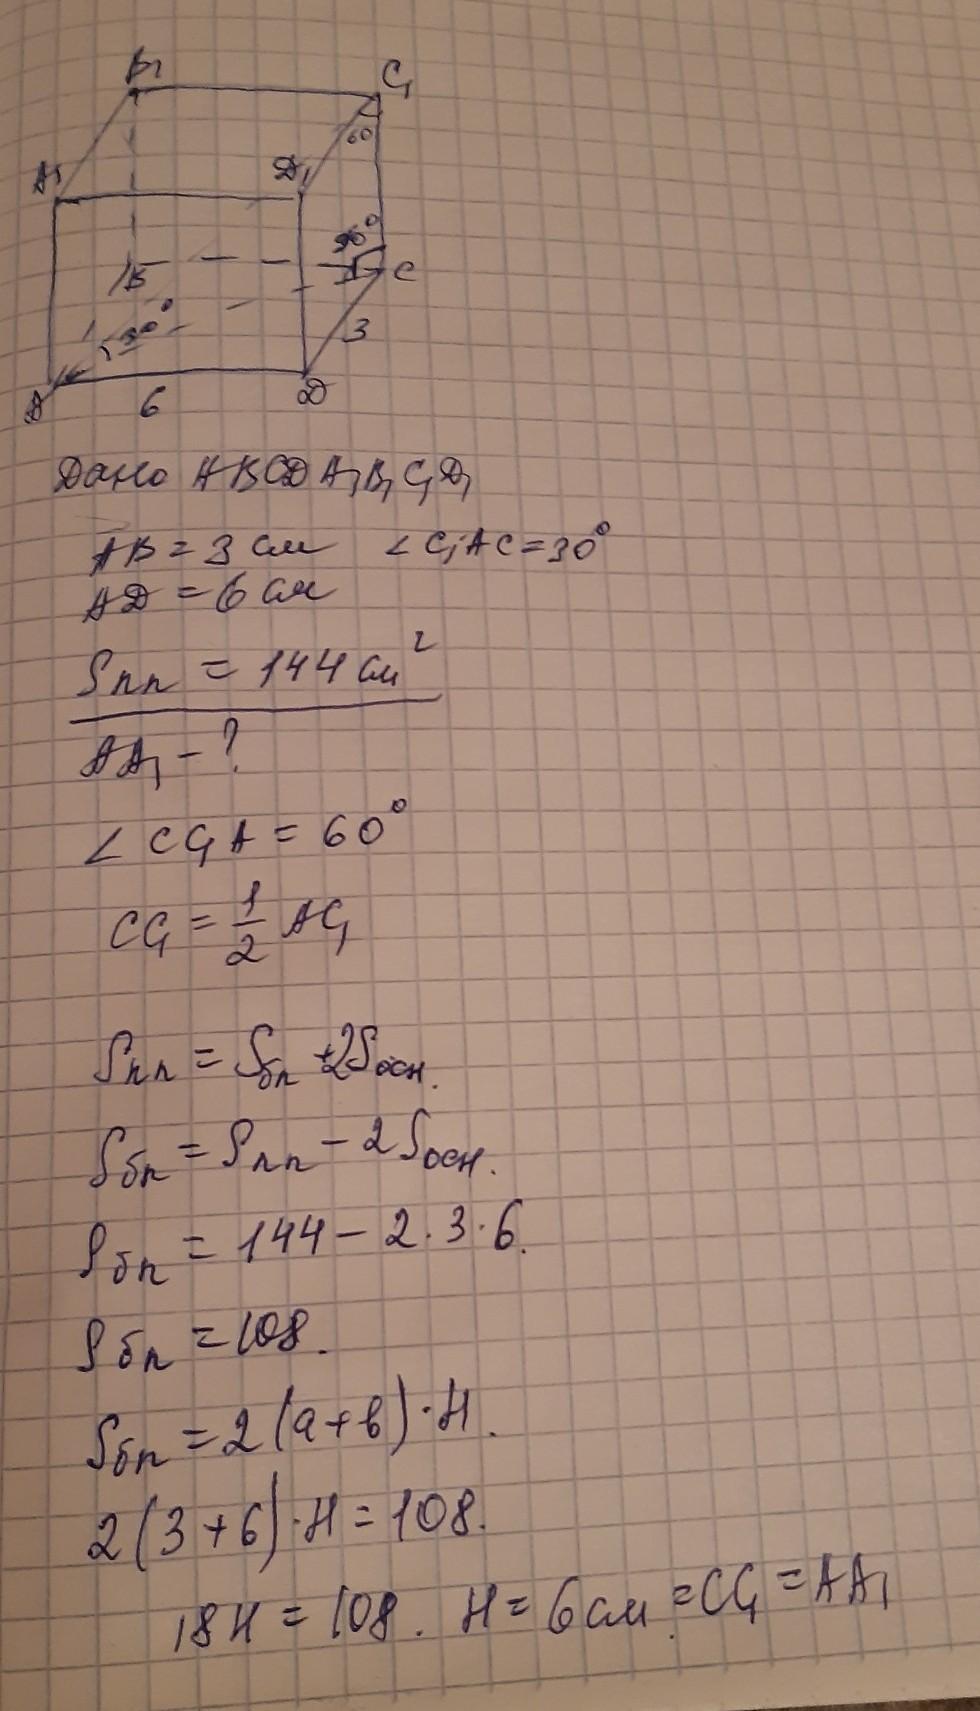 B₁ C₁
60
A₁ D₁
90°
B C
30° 3
A 6 D
Дано ABCDA₁B₁C₁D₁
AB = 3 см ∠C₁AC = 30°
AD = 6 см
Sпп = 144 см²
AA₁ – ?
∠CC₁A = 60°
CC₁ = 1/2 AC₁
Sпп = Sбп + 2Sосн.
Sбп = Sпп – 2Sосн.
Sбп = 144 – 2·3·6.
Sбп = 108.
Sбп = 2(a+b)·H.
2(3+6)·H = 108.
18H = 108. H = 6 см = CC₁ = AA₁